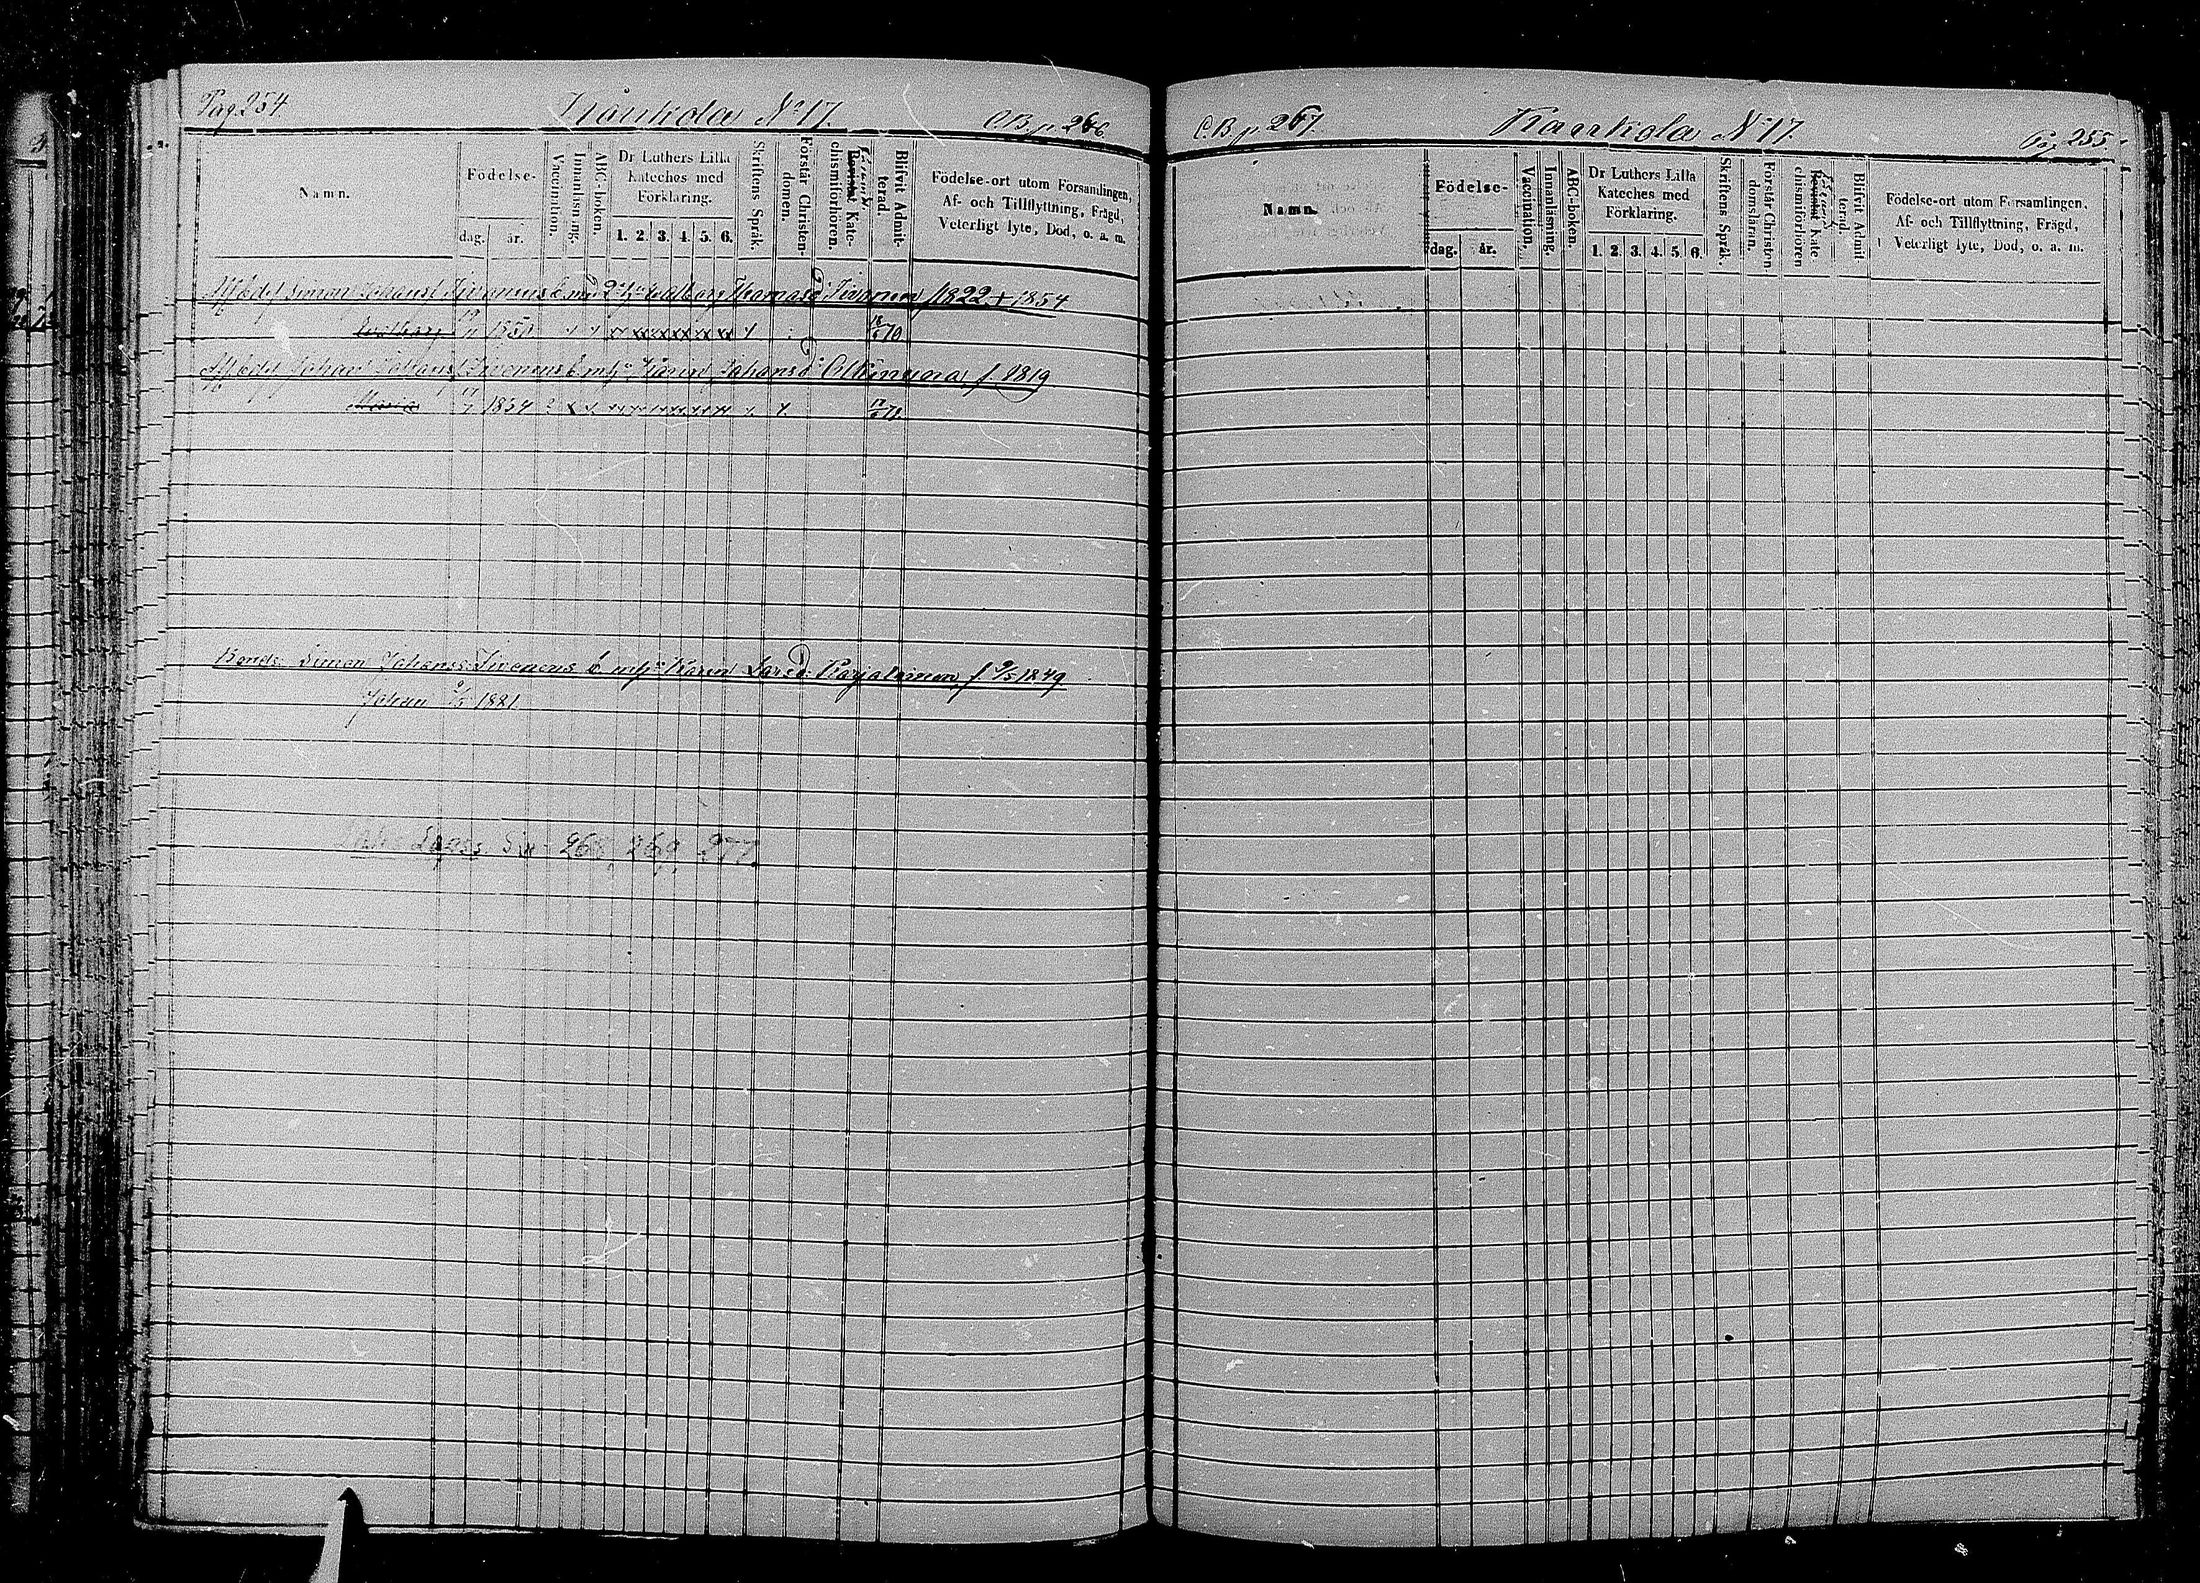 Pag 254 Kaukola No 17. C.B. p 266
Namn.
Födelse-
dag. år.
Vaccination.
Innanläsning.
ABC-boken.
Dr Luthers Lilla
Kateches med
Förklaring.
1. 2. 3. 4. 5. 6.
Skriftens Språk.
Förstår Christen-
domen.
Bevistat Kate-
chismiförhören.
Blifvit Admit-
terad.
Födelse-ort utom Församlingen,
Af- och Tillflyttning, Frägd,
Veterligt lyte, Död, o. a. m.
Simon Johanss Tivonens & 2 h. Walborg Thomasd: Tivonen f 1822 + 1854
Walborg 1851 18/6 70
Johan Johans Tivonens & Karin Johansd: f. 1819
Maria 1854
Bonde Simon Johanss Tivonens & Karin Larsd: Karjalainen f 9/5 1849
Johan 1881
268, 269, 277.
C.B. p 267. Kaukola No 17. Pag. 255
Namn.
Födelse-
dag. år.
Vaccination.
Innanläsning.
ABC-boken.
Dr Luthers Lilla
Kateches med
Förklaring.
1. 2. 3. 4. 5. 6.
Skriftens Språk.
Förstår Christen
domsläran.
Bevistat Kate
chismiförhören
Blifvit Admit
terad.
Födelse-ort utom Församlingen.
Af- och Tillflyttning, Frägd,
Veterligt lyte, Död, o. a. m.